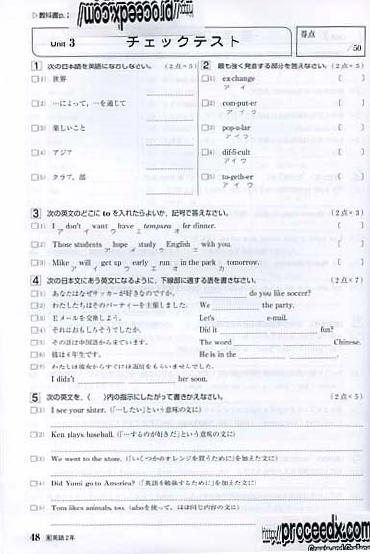 ▷教科書p.
http://proceedx.com
Unit 3 チェックテスト 得点 /50
1 次の日本語を英語になおしなさい。 (2点×5)
(1) 世界
(2) …によって，…を通して
(3) 楽しいこと
(4) アジア
(5) クラブ，部
2 最も強く発音する部分を答えなさい。 (2点×5)
(1) ex·change [ ]
ア イ
(2) com·put·er [ ]
ア イ ウ
(3) pop·u·lar [ ]
ア イ ウ
(4) dif·fi·cult [ ]
ア イ ウ
(5) to·geth·er [ ]
ア イ ウ
3 次の英文のどこに to を入れたらよいか，記号で答えなさい。 (2点×3)
(1) I don't want have tempura for dinner. [ ]
ア イ ウ エ オ
(2) Those students hope study English with you. [ ]
ア イ ウ エ
(3) Mike will get up early run in the park tomorrow. [ ]
ア イ ウ エ オ カ
4 次の日本文にあう英文になるように，下線部に適する語を書きなさい。 (2点×7)
(1) あなたはなぜサッカーが好きなのですか。 do you like soccer?
(2) わたしたちはそのパーティーを主催しました。 We the party.
(3) Eメールを交換しよう。 Let's e-mail.
(4) それはおもしろそうでしたか。 Did it fun?
(5) その語は中国語から来ています。 The word Chinese.
(6) 彼は6年生です。 He is in the .
(7) わたしは彼女からすぐには返信をもらいませんでした。
I didn't her soon.
5 次の英文を，( )内の指示にしたがって書きかえなさい。 (2点×5)
(1) I see your sister. (「…したい」という意味の文に)
(2) Ken plays baseball. (「…するのが好きだ」という意味の文に)
(3) We went to the store. (「いくつかのオレンジを買うために」を加えた文に)
(4) Did Yumi go to America? (「英語を勉強するために」を加えた文に)
(5) Tom likes animals, too. (alsoを使って，ほぼ同じ内容の文に)
48 英語2年
http://proceedx.com